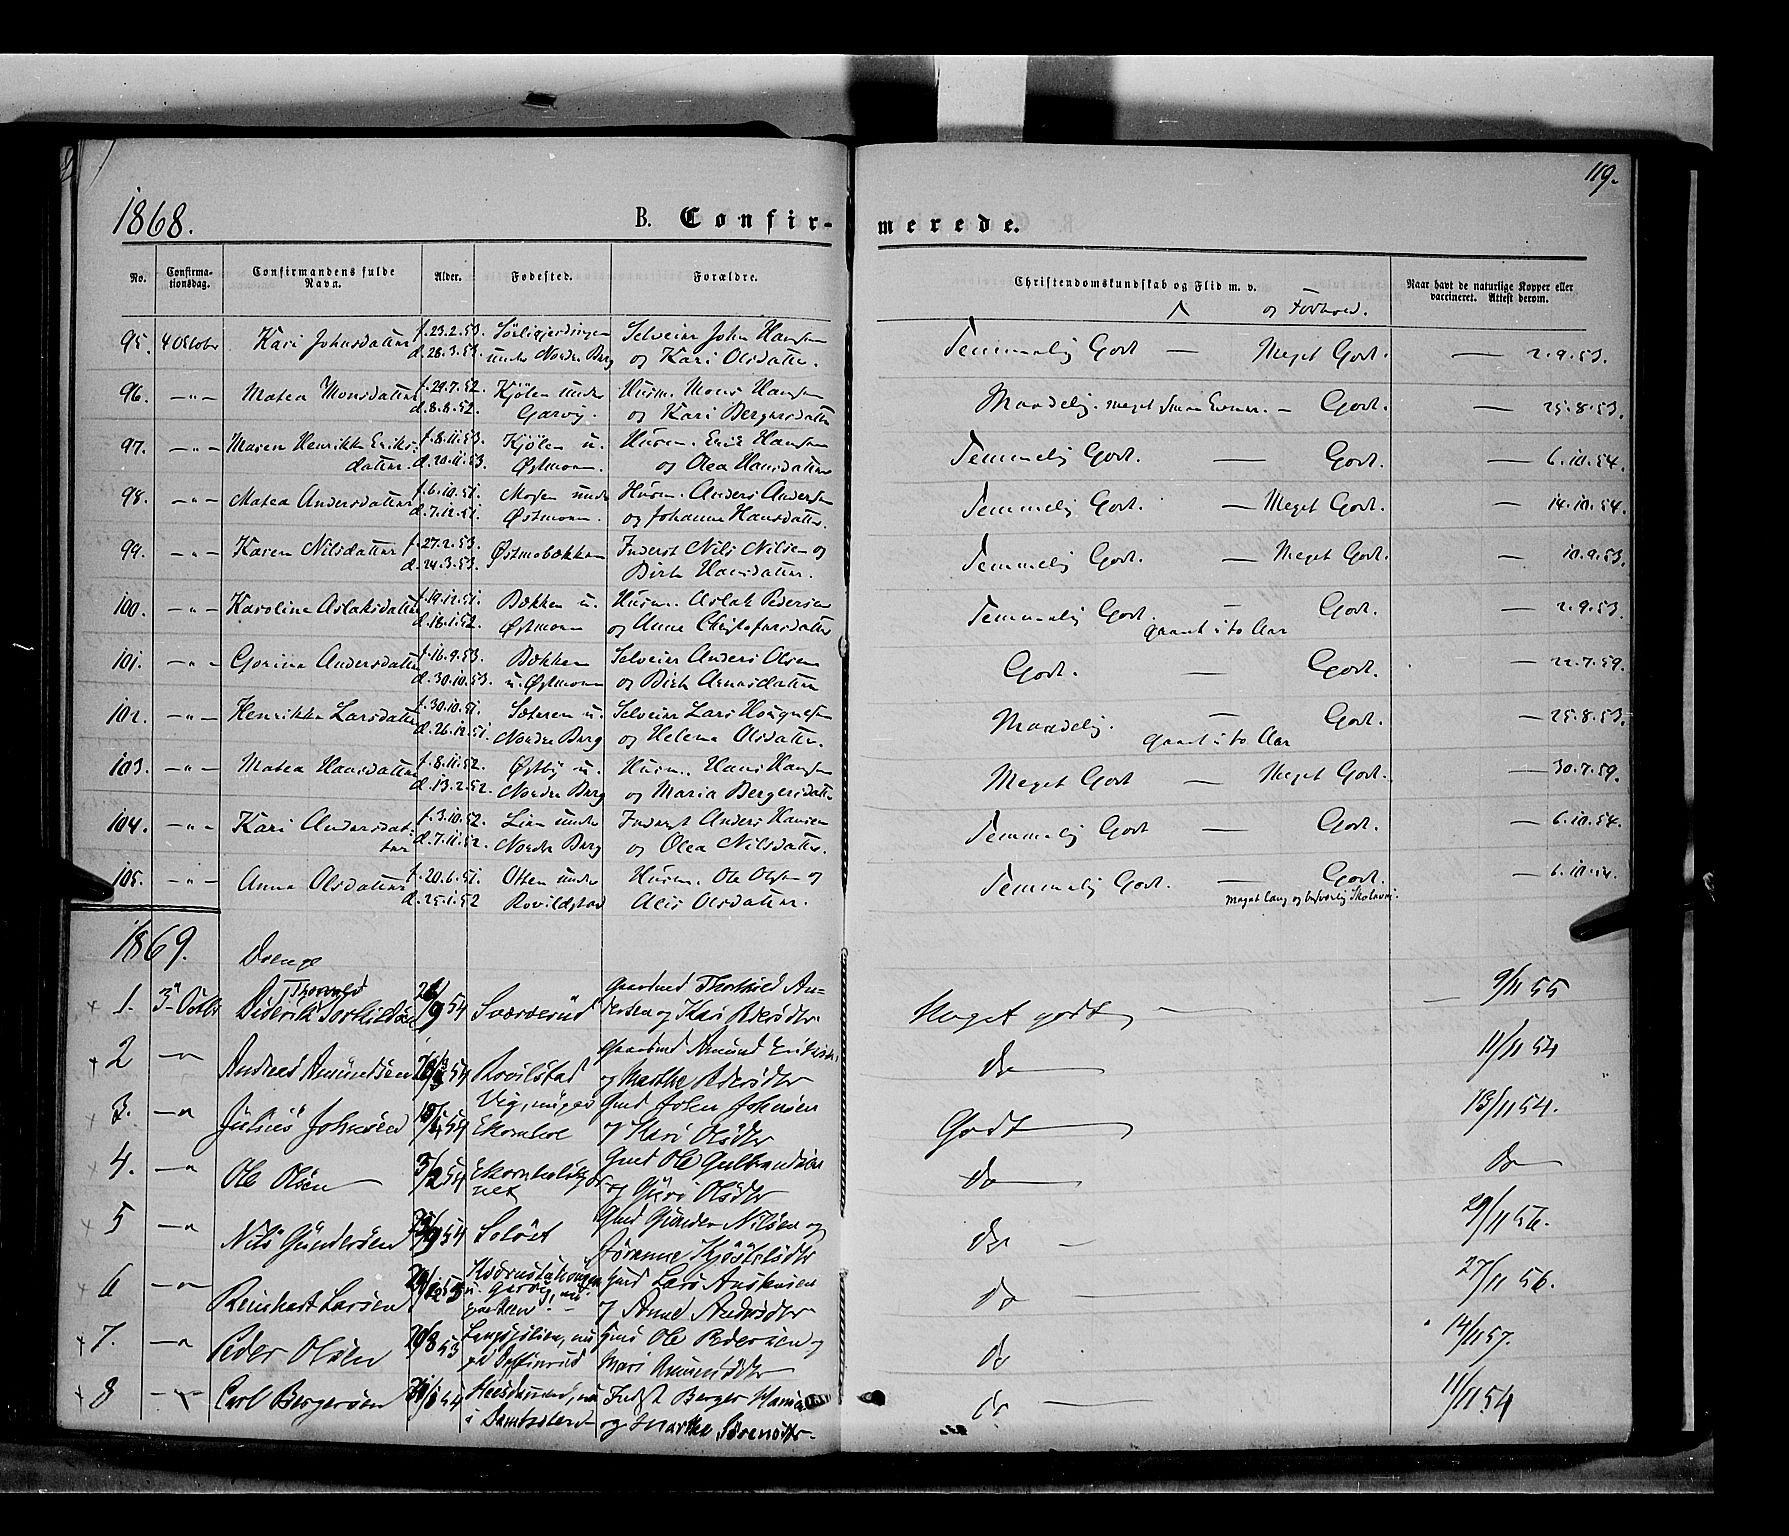 119.
1868.
B. Confir-merede.
No. Confirma-tionsdag. Confirmandens fulde Navn. Alder. Fødested. Forældre. Christendomskundskab og Flid m. v. og Forhold. Naar havt de naturlige Kopper eller vaccineret. Attest derom.
95. 4 October Kari Johnsdatter f. 23.2.53. Selveier John Hansen Temmelig Godt — Meget Godt. — 2.9.53.
d. 28.3.53. under Nordre Berg og Kari Olsdatter.
96. —"— Matea Monsdatter f. 29.7.52. Kjølen under Husm. Mons Hansen Maadelig. meget smaa Evner. — Godt. — 25.8.53.
d. 8.8.52. Garvig. og Kari Bergersdatter
97. —"— Maren Henrikke Eriks- f. 8.11.53. Kjølen u. Husm. Erik Hansen Temmelig Godt. — Godt. — 6.10.54.
datter. d. 20.11.53. Østmoen. og Olea Hansdatter
98. —"— Matea Andersdatter f. 6.10.51. Mosen under Husm. Anders Andersen Temmelig Godt. — Meget Godt. — 14.10.54.
d. 7.12.51. Østmoen. og Johanne Hansdatter.
99. —"— Karen Nilsdatter f. 27.2.53. Østmobækken Inderst Nils Nilsen og Temmelig Godt. — Meget Godt. — 10.9.53.
d. 24.3.53. Birte Hansdatter.
100. —"— Karoline Aslaksdatter f. 19.12.51. Bækken u. Husm. Aslak Pedersen Temmelig Godt. — Godt. — 2.9.53.
d. 18.1.52. Østmoen og Anne Christofersdatter gaaet i to Aar
101. —"— Gorine Andersdatter f. 16.9.53. Bækken Selveier Anders Olsen Godt. — Godt. — 22.7.59.
d. 30.10.53. u. Østmoen og Birte Arnesdatter
102. —"— Henrikke Larsdatter f. 30.10.51. Sæteren u. Selveier Lars Maadelig. — Godt. — 25.8.53.
d. 26.12.51. Nordre Berg og Helene Olsdatter. gaaet i to Aar
103. —"— Matea Hansdatter f. 8.11.52. Østby u. Husm. Hans Hansen Meget Godt — Meget Godt. — 30.7.59.
d. 13.2.52. Nordre Berg og Maria Bergersdatter
104. —"— Kari Andersdat- f. 3.10.52. Lien under Inderst Anders Hansen Temmelig Godt — Godt. — 6.10.54.
ter d. 7.11.52. Nordre Berg og Olea Nilsdatter.
105. —"— Anne Olsdatter f. 20.6.51. under Husm. Ole Olsen og Temmelig Godt. — Godt. — 6.10.54.
d. 25.1.52 Rovildstad Alis Olsdatter. Meget lang og besværlig Skolevei.
1869. Drenge
1. 3 Octbr Thorvald Gaardmd Thorkild An- 9/11 55
Diderik Torkildsen 9 54 Sværærud dersen og Kari Pedersdtr Meget godt —
2 —"— Andreas Amundsen 54 Rovilstad Gaardmd Amund Eriksen do 11/11 54
og Marthe Pedersdtr
3. —"— Julius Johnsen 54 Gmd John Johnsen Godt 13/11 54.
Ekornhol og Kari Olsdtr
4. —"— Ole Olsen 3/2 54 Gmd Ole Gulbrandsen do do
og Guri Olsdtr
5 —"— Nils Gundersen 9 54 Solöst Gmd Gunder Nilsen og do — 29/11 56.
Jøranne Kjöstelsdtr
6 —"— Reinhart Larsen 53 Gmd Lars Anstensen do — 27/11 56.
og Anne Andersdtr
7. —"— Peder Olsen 20/8 53 Gmd Ole Pedersen og do 14/11 57.
Mari Amundsdtr
8 —"— Carl Bergersen 54 Indst Berger Hansen do — 11/11 54
og Marthe Sörensdtr